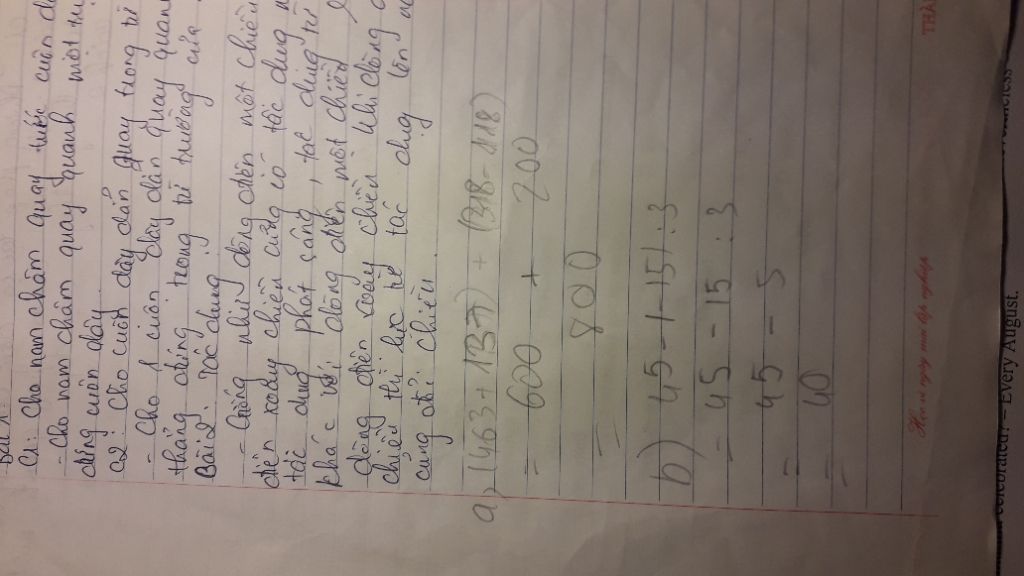 C1: Cho nam châm quay trước cuộn
- Cho nam châm quay quanh một
đứng cuộn dây
C2: Cho cuộn dây dẫn quay trong
- Cho 1 cuộn dây dẫn quay quan
thẳng đứng trong từ trường của
Bài 2: Tác dụng
- Giống như dòng điện một chiều
điện xoay chiều cũng có tác dụng
tác dụng phát sáng, tác dụng từ
khác với dòng điện một chiều
dòng điện xoay chiều khi dòng
chiều thì lực từ tác dụng lên
cũng đổi chiều.
a) (463+137) + (318-118)
= 600 + 200
= 800
b) 45-|-15|:3
= 45-15:3
= 45-5
= 40
Học vì ngày mai lập nghiệp
THÁ
celebrated? – Every August.